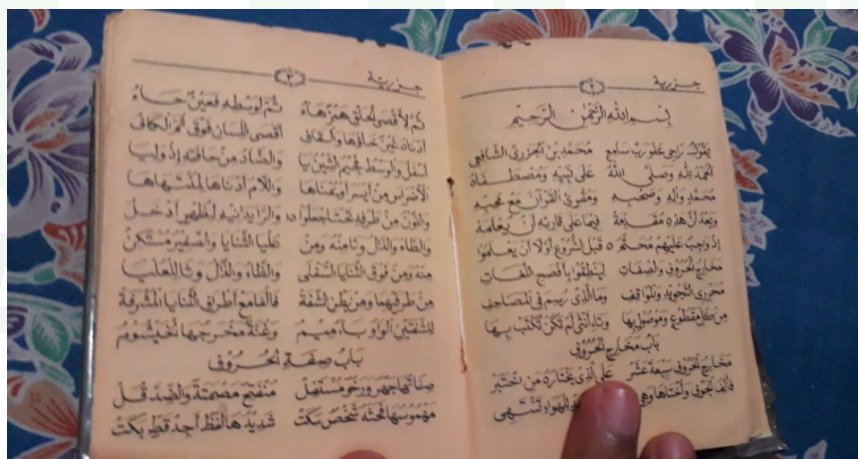 جزرية
٢
بسم الله الرحمن الرحيم
يقول راجي عفو رب سامع محمد بن الجزري الشافعي
الحمد لله وصلى الله على نبيه ومصطفاه
محمد وآله وصحبه ومقرئ القرآن مع محبه
وبعد إن هذه مقدمة فيما على قارئه أن يعلمه
إذ واجب عليهم محتم ٥ قبل الشروع أولا أن يعلموا
مخارج الحروف والصفات لينطقوا بأفصح اللغات
محرري التجويد والمواقف وما الذي رسم في المصاحف
من كل مقطوع وموصول بها وتاء أنثى لم تكن تكتب بها
باب مخارج الحروف
مخارج الحروف سبعة عشر على الذي يختاره من اختبر
فألف الجوف وأختاها وهي للهواء تنتهي
جزرية
٣
ثم لأقصى الحلق همز هاء ثم لوسطه فعين حاء
أدناه غين خاؤها والقاف أقصى اللسان فوق ثم الكاف
أسفل والوسط فجيم الشين يا والضاد من حافته إذ وليا
الأضراس من أيسر أو يمناها واللام أدناها لمنتهاها
والنون من طرفه تحت اجعلوا ١٥ والرا يدانيه لظهر أدخل
والطاء والدال وتا منه ومن عليا الثنايا والصفير مستكن
منه ومن فوق الثنايا السفلى والظاء والذال وثا للعليا
من طرفيهما ومن بطن الشفة فالفا مع أطراف الثنايا المشرفة
للشفتين الواو باء ميم وغنة مخرجها الخيشوم
باب صفة الحروف
صفاتها جهر ورخو مستفل منفتح مصمتة والضد قل
مهموسها فحثه شخص سكت شديدها لفظ أجد قط بكت